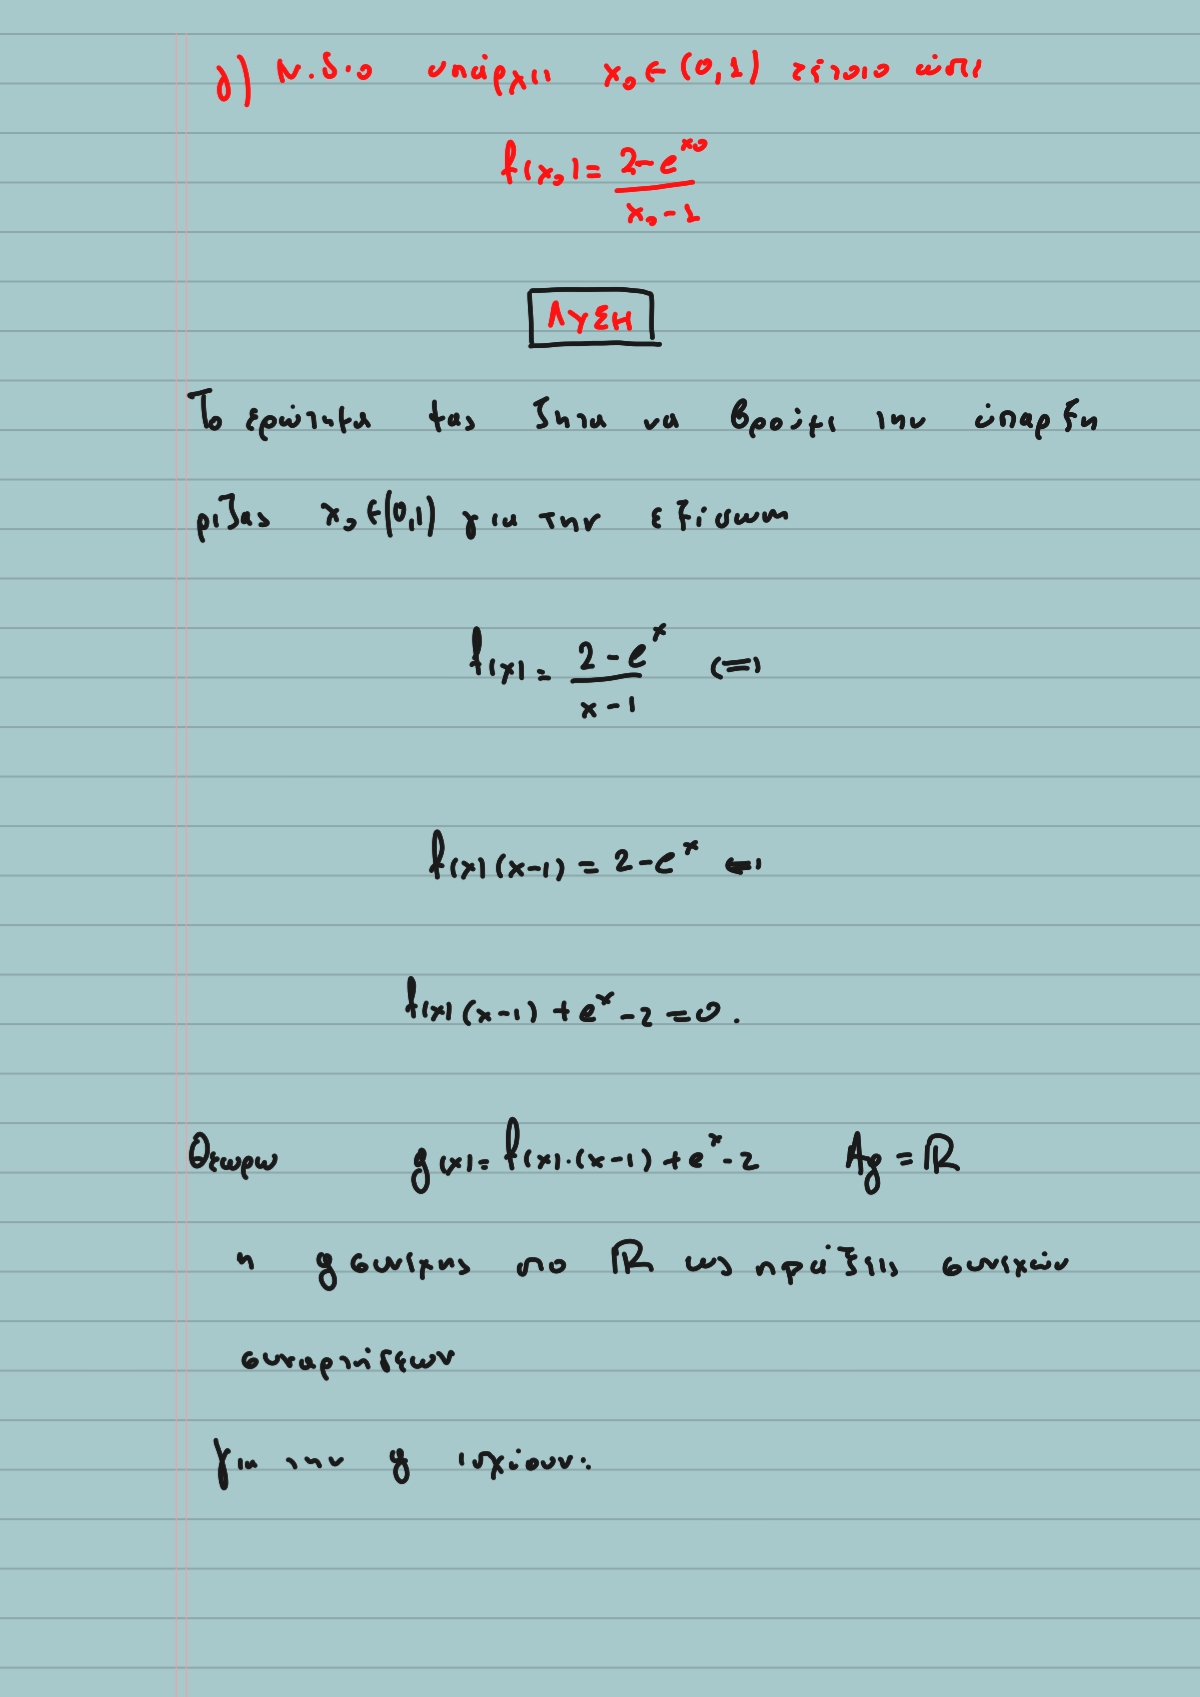 γ) Ν.δ.ο υπάρχει x₀ ∈ (0,1) τέτοιο ώστε
f(x₀) = \frac{2-e^{x₀}}{x₀-1}
ΛΥΣΗ
Το ερώτημα μας ζητα να βρούμε την ύπαρξη
ριζας x₀ ∈ (0,1) για την εξίσωση
f(x) = \frac{2-e^x}{x-1} (=)
f(x)(x-1) = 2-e^x (=)
f(x)(x-1) + e^x - 2 = 0.
Θεωρω g(x) = f(x)·(x-1) + e^x - 2 Ag = ℝ
η g συνεχης στο ℝ ως πράξεις συνεχών
συναρτήσεων
για την g ισχύουν: